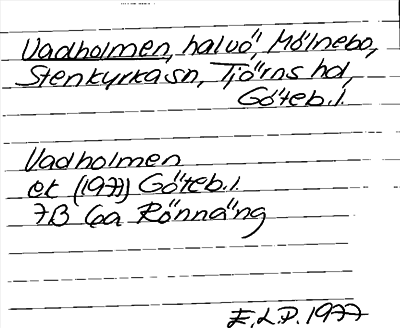 Vadholmen, halvö, Mölnebo,
Stenkyrka sn, Tjörns hd,
Göteb.l.
Vadholmen
ek (1977) Göteb.l.
7B 6a Rönnäng
E.L.P. 1977